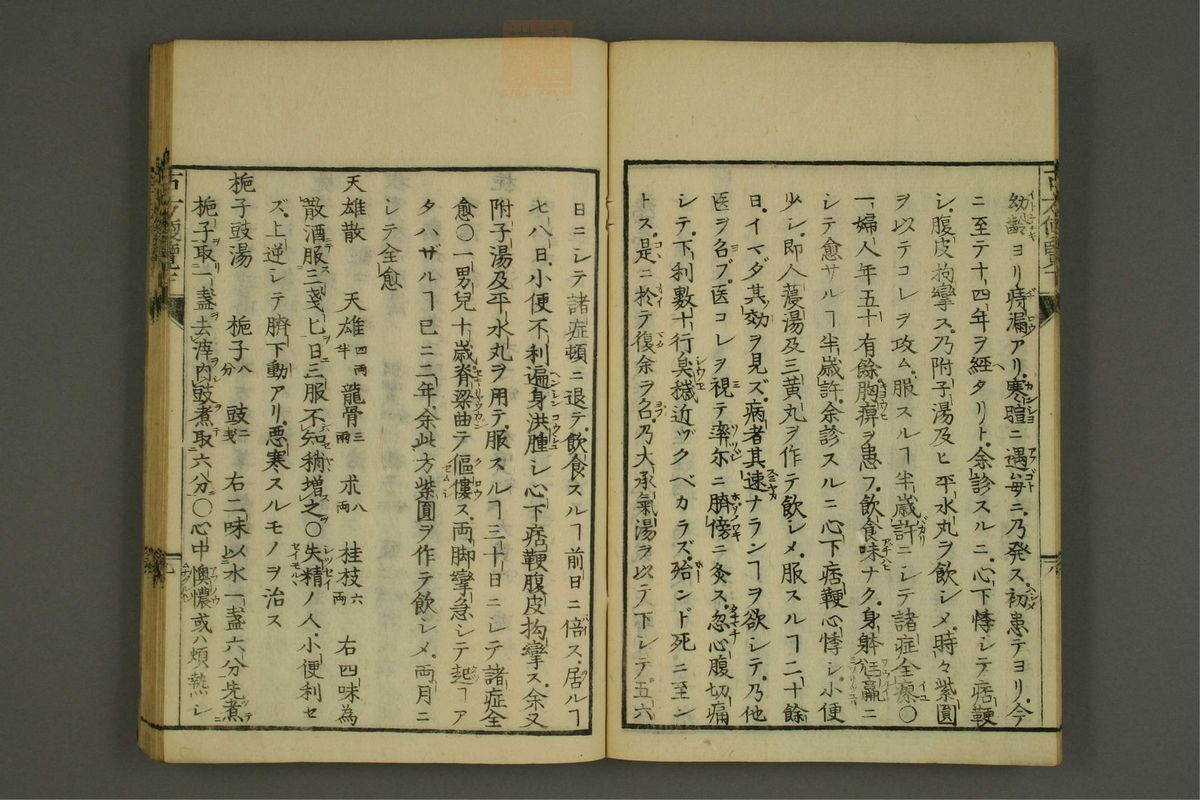 幼齡ヨリ痔漏アリ。寒暄ニ遇毎ニ乃発ス。初患テヨリ。今
ニ至テ十四年ヲ經タリト。余診スルニ。心下悸シテ痞鞕
シ。腹皮拘攣ス。乃附子湯及ヒ平水丸ヲ飲シメ。時々紫圓
ヲ以テコレヲ攻ム。服スルヿ半歳許ニシテ諸症全瘳〇
一婦人年五十有餘胸痹ヲ患フ。飲食味ナク。身躰尩羸ニ
シテ愈サルヿ半歳許。余診スルニ心下痞鞕心悸シ。小便
少シ。即人蓡湯及三黄丸ヲ作テ飲シメ。服スルヿ二十餘
日。イマダ其効ヲ見ズ。病者其速ナランヿヲ欲シテ。乃他
医ヲ名ブ。医コレヲ視テ率尓ニ臍傍ニ灸ス。忽心腹切痛
シテ。下利數十行臭穢近ヅクベカラズ。殆ンド死ニ至ン
トス。是ニ於テ復余ヲ名。乃大承氣湯ヲ以テ下シテ。五六
日ニシテ諸症頓ニ退テ。飲食スルヿ前日ニ倍ス。居ルヿ
七八日。小便不利遍身洪腫シ心下痞鞕腹皮拘攣ス。余又
附子湯及平水丸ヲ用テ。服スルヿ三十日ニシテ諸症全
愈〇一男兒十歳脊梁曲テ傴僂ス。両脚攣急シテ起ヿア
タハザルヿ已ニ二年。余此方紫圓ヲ作テ飲シメ。両月ニ
シテ全愈
天雄散 天雄四両半 龍骨三両 朮八両 桂枝六両 右四味為
散酒服三戔匕日三服不知稍増之〇失精ノ人。小便利セ
ズ。上逆シテ臍下動アリ。悪寒スルモノヲ治ス
梔子豉湯 梔子八分 豉二戔 右二味以水一盞六分先煮
梔子取一盞去滓内豉煮取六分〇心中懊憹或ハ煩熱シ